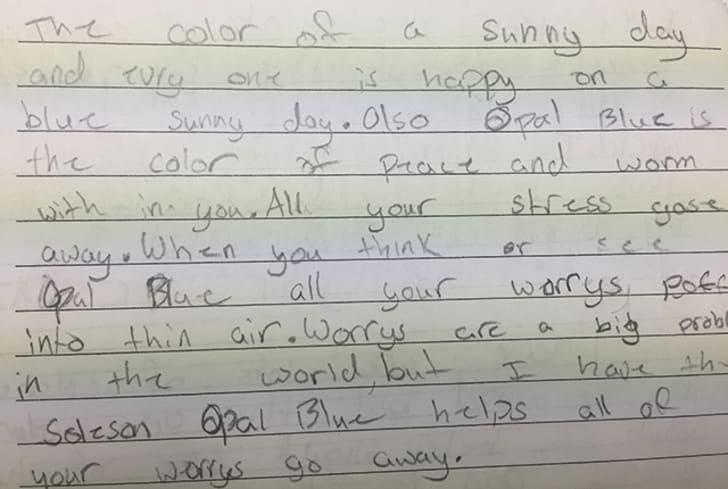 The color of a sunny day
and evry one is happy on a
blue sunny day. Also Opal Blue is
the color of peace and worm
with in you. All your stress gose
away. When you think or see
Opal Blue all your worrys poff
into thin air. Worrys are a big probl
in the world, but I have th
Soleson Opal Blue helps all of
your worrys go away.